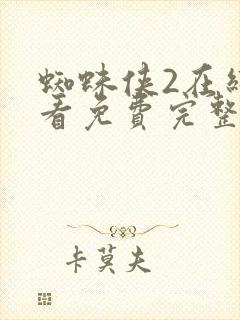 蜘蛛侠2在
看免費完整
卡莫夫